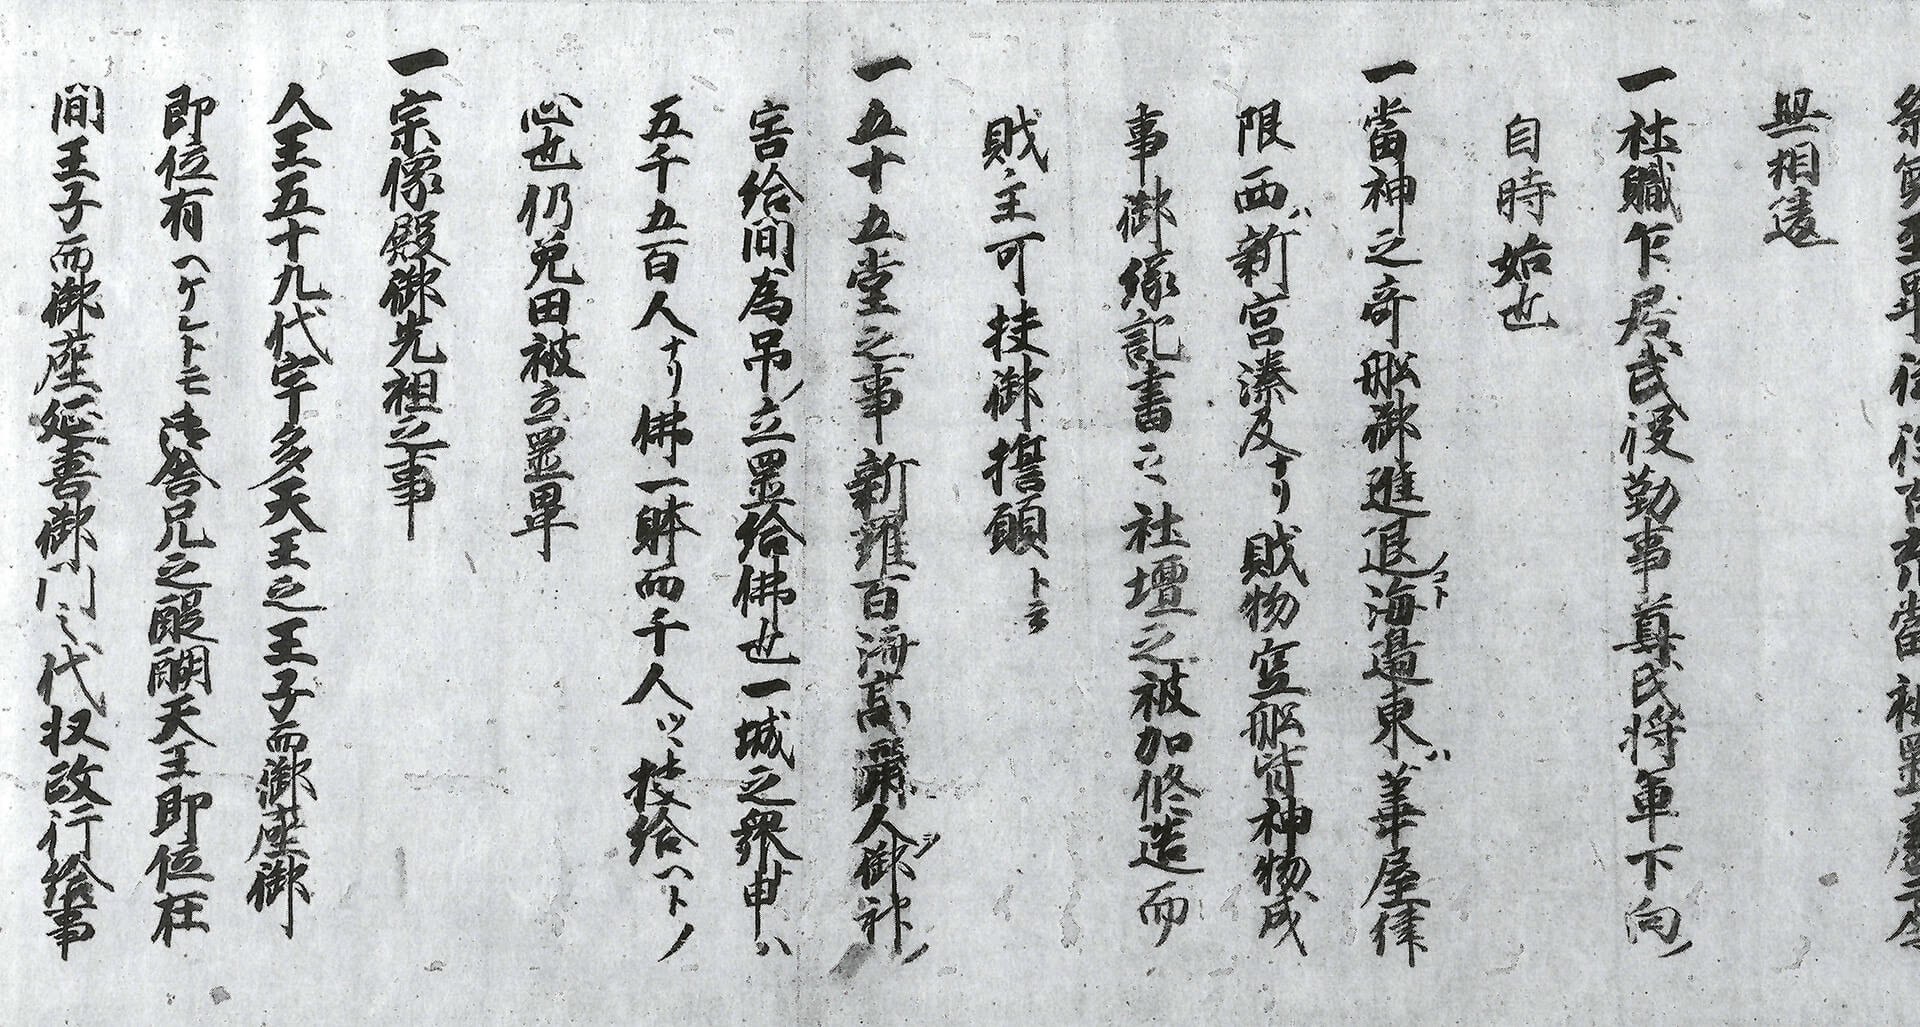 無相違
一社職乍居武役勤事尊氏将軍下向ノ
自時始也
一當神之寄舩御進退ノコト海邊東ハ葦屋津
限西ハ新宮湊及ナリ賊物空舩皆神物成
事御縁記書立社壇之被加修造而
賊主可扶御誓願トミ
一五十五堂之事新羅百済高麗人ヲ御神ノ
害給間為吊立置給佛也一城之衆申ハ
五千五百人ナリ佛一躰而千人ツヽ扶給ヘトノ
心也仍免田被立置畢
一宗像殿御先祖之事
人王五十九代宇多天王之王子而御座御
即位有ヘケレトモ御舎兄之醍醐天王即位在
間王子而御座延喜御門之代収改行給事